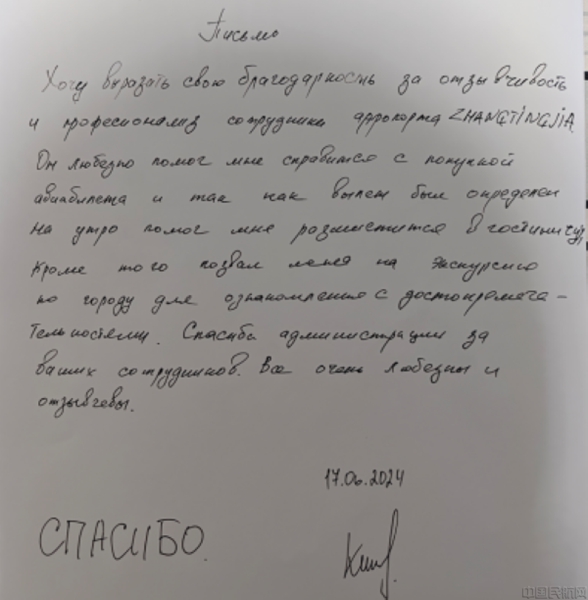 Письмо
Хочу выразать свою благодарность за отзывчивость
и професионализ сотруднику аэропорта ZHANGTINGJIA.
Он любезно помог мне справится с покупкой
авиабилета и так как вылет был определен
на утро помог мне разместится в гостиницу,
Кроме того позвал меня на экскурсию
по городу для ознакомления с достопремеча-
тельностями. Спасибо администрации за
ваших сотрудников. Все очень любезны и
отзывчевы.
17.06.2024
СПАСИБО.
中国民航网